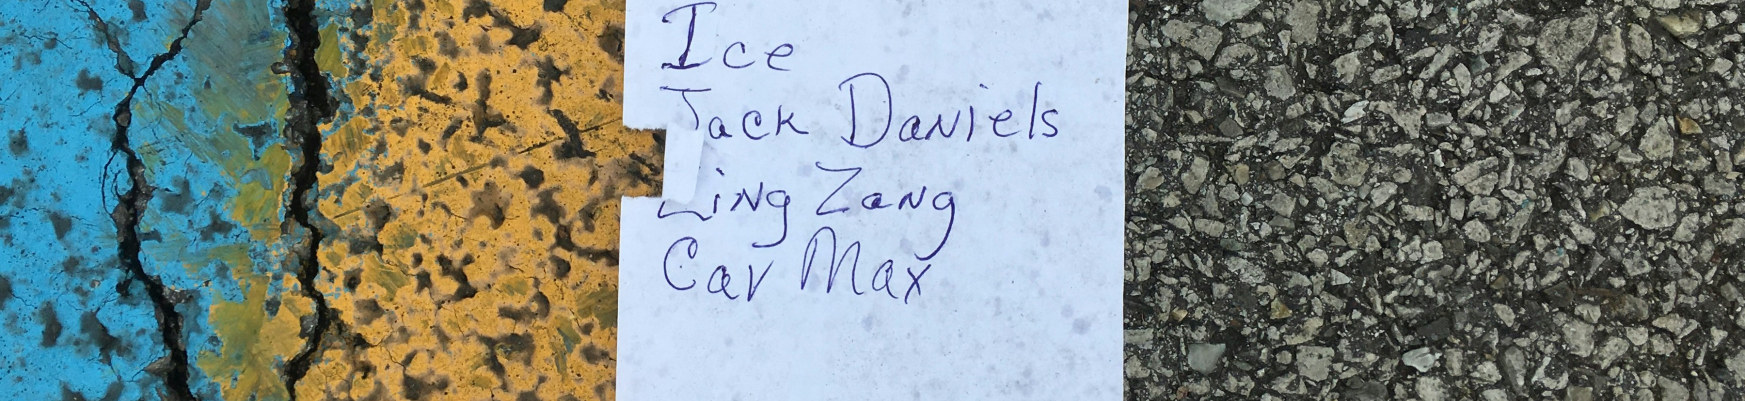 Ice
Jack Daniels
Ling Zang
Car Max